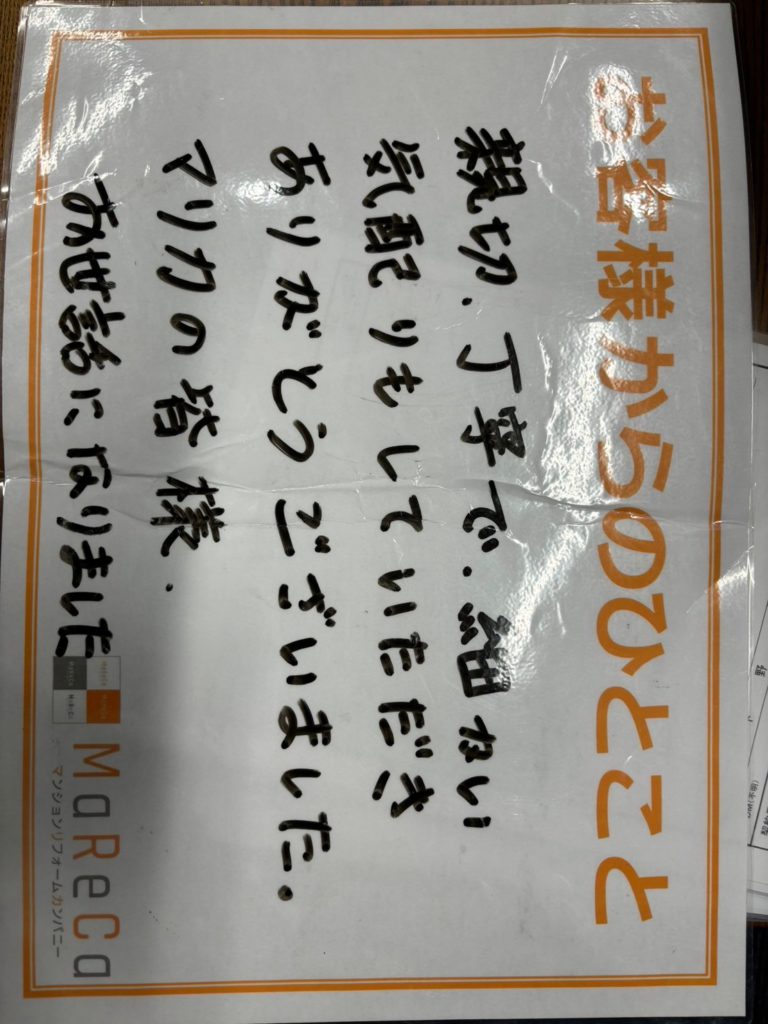 お客様からのひとこと
親切、丁寧で、細かい
気配りもしていただき
ありがとうございました。
マリカの皆様、
お世話になりました
MaReCa
マンションリフォームカンパニー